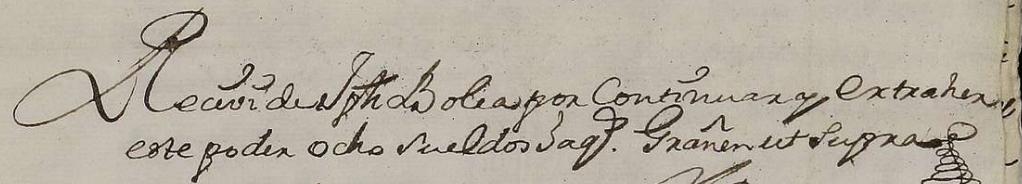 Recivi de Jph Bolea por Continuar y extraher
este poder ocho sueldos Jaqs. Grañen ut supra